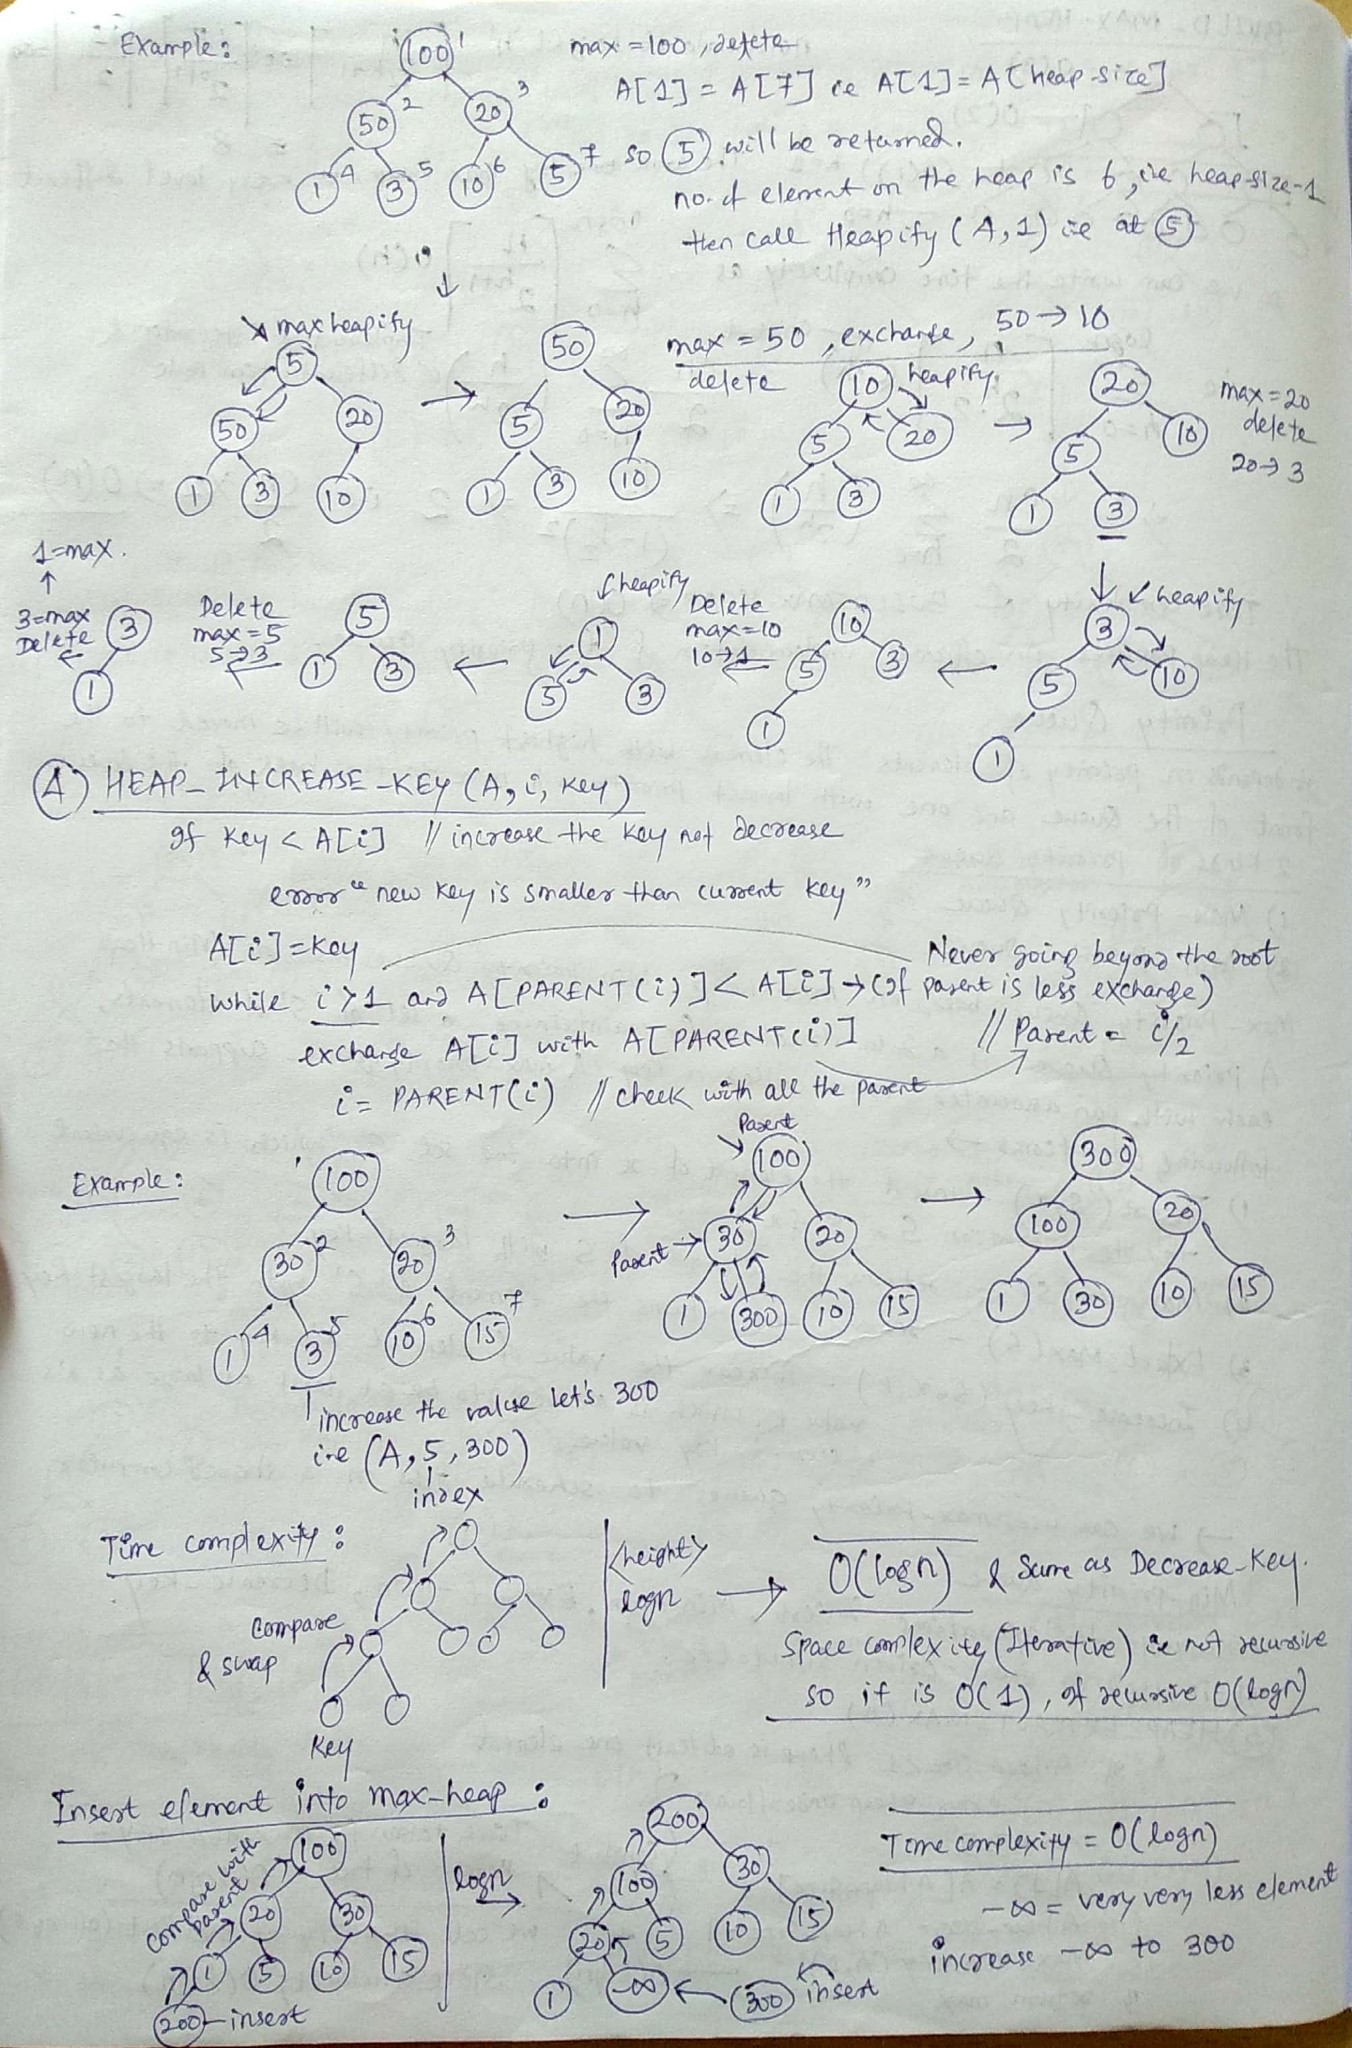 Example:
100 1
50 2
20 3
1 4
3 5
10 6
5 7
max = 100, delete
A[1] = A[7] ie A[1] = A[heap-size]
so 5 will be returned.
no. of element on the heap is 6, ie heap-size-1
then call Heapify (A, 1) ie at 5
max heapify
5
50 20
1 3 10
50
5 20
1 3 10
max = 50, exchange, 50 → 10
delete
heapify
10
5 20
1 3
20
5 10
1 3
max = 20
delete
20 → 3
heapify
3
5 10
1
10
5 3
1
Delete
max = 10
10 → 1
heapify
1
5 3
5
1 3
Delete
max = 5
5 → 3
3
1
3 = max
Delete
1 = max.
A HEAP_INCREASE_KEY (A, i, key)
If key < A[i] // increase the key not decrease
error "new key is smaller than current key"
A[i] = key
Never going beyond the root
while i > 1 and A[PARENT(i)] < A[i] → (If parent is less exchange)
exchange A[i] with A[PARENT(i)] // Parent = i/2
i = PARENT(i) // check with all the parent
Example:
100
30 2 20 3
1 4 3 5 10 6 15 7
increase the value let's 300
i.e (A, 5, 300)
index
Parent
100
Parent → 30 20
1 300 10 15
300
100 20
1 30 10 15
Time complexity:
compare
& swap
Key
<height>
logn
O(logn) & Same as Decrease-Key.
Space complexity (Iterative) ie not recursive
so it is O(1), if recursive O(logn)
Insert element into max-heap:
compare with
parent
100
20 30
1 5 10 15
200 - insert
logn
200
100 30
20 5 10 15
1 -∞ 300 insert
Time complexity = O(logn)
-∞ = very very less element
increase -∞ to 300